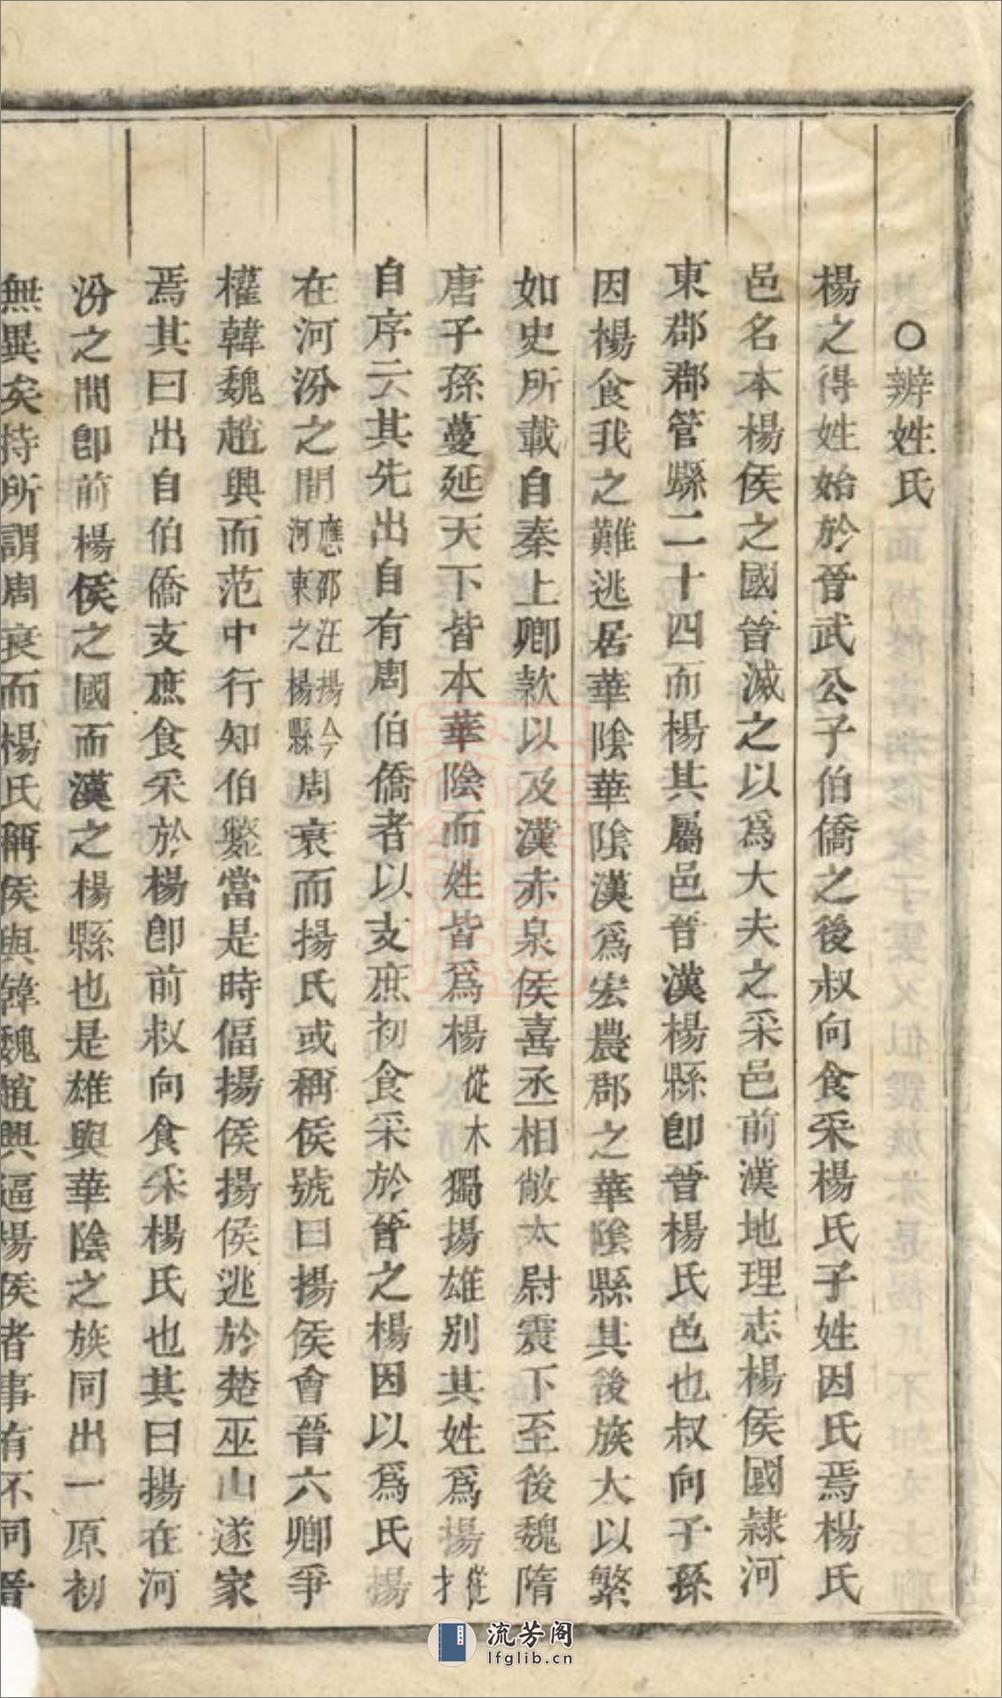 ○辨姓氏
楊之得姓始於晉武公子伯僑之後叔向食采楊氏子姓因氏焉楊氏
邑名本楊侯之國晉滅之以爲大夫之采邑前漢地理志楊侯國隸河
東郡郡管縣二十四而楊其屬邑晉漢楊縣卽晉楊氏邑也叔向子孫
因楊食我之難逃居華陰華陰漢爲宏農郡之華陰縣其後族大以繁
如史所載自秦上卿款以及漢赤泉侯喜丞相敞太尉震下至後魏隋
唐子孫蔓延天下皆本華陰而姓皆爲楊從木獨揚雄別其姓爲揚從扌
自序云其先出自有周伯僑者以支庶初食采於晉之楊因以爲氏揚
在河汾之間應邵注揚今河東之楊縣周衰而揚氏或稱侯號曰揚侯會晉六卿爭
權韓魏趙興而范中行知伯獘當是時偪揚侯揚侯逃於楚巫山遂家
焉其曰出自伯僑支庶食采於楊卽前叔向食采楊氏也其曰揚在河
汾之間卽前楊侯之國而漢之楊縣也是雄與華陰之族同出一原初
無異矣持所謂周衰而楊氏稱侯與韓魏趙興逼楊侯者事有不同晉
流芳阁
lfglib.cn